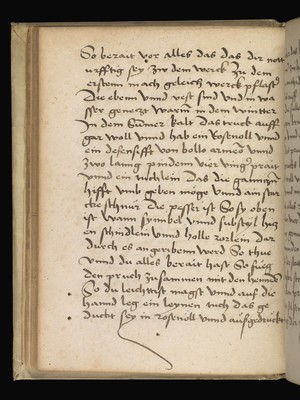 So berait vor alles das das dir nott
urfftig sey zw dem werck zu dem
ersten nach geleich werck pflast
Die eben vnnd vest sind vnd in wa
sser genetzt warm in dem winter
In dem Sumer kalt Das truck auff
gar woll vnnd hab ein rosenoll vnnd
ein defensifft von bollo armeno vnnd
zwo lanng pinden vier vinger prait
vnnd ein tuchlein Das die
hifft vmb geben möge vnnd ain star
cke schnur Die pesser ist So sy oben
ist Wann symbel vnnd substyl
en schindlein vnnd holle rorlein dar
durch es an geribenn werd So thue
vnnd du alles berait hast So fueg
den pruch zusammen mit den hennden
So du leichtist magst vnnd auf die
hannd leg ein leynen tuch das ge
ducht sey in rosenoll vnnd ausgedruckt